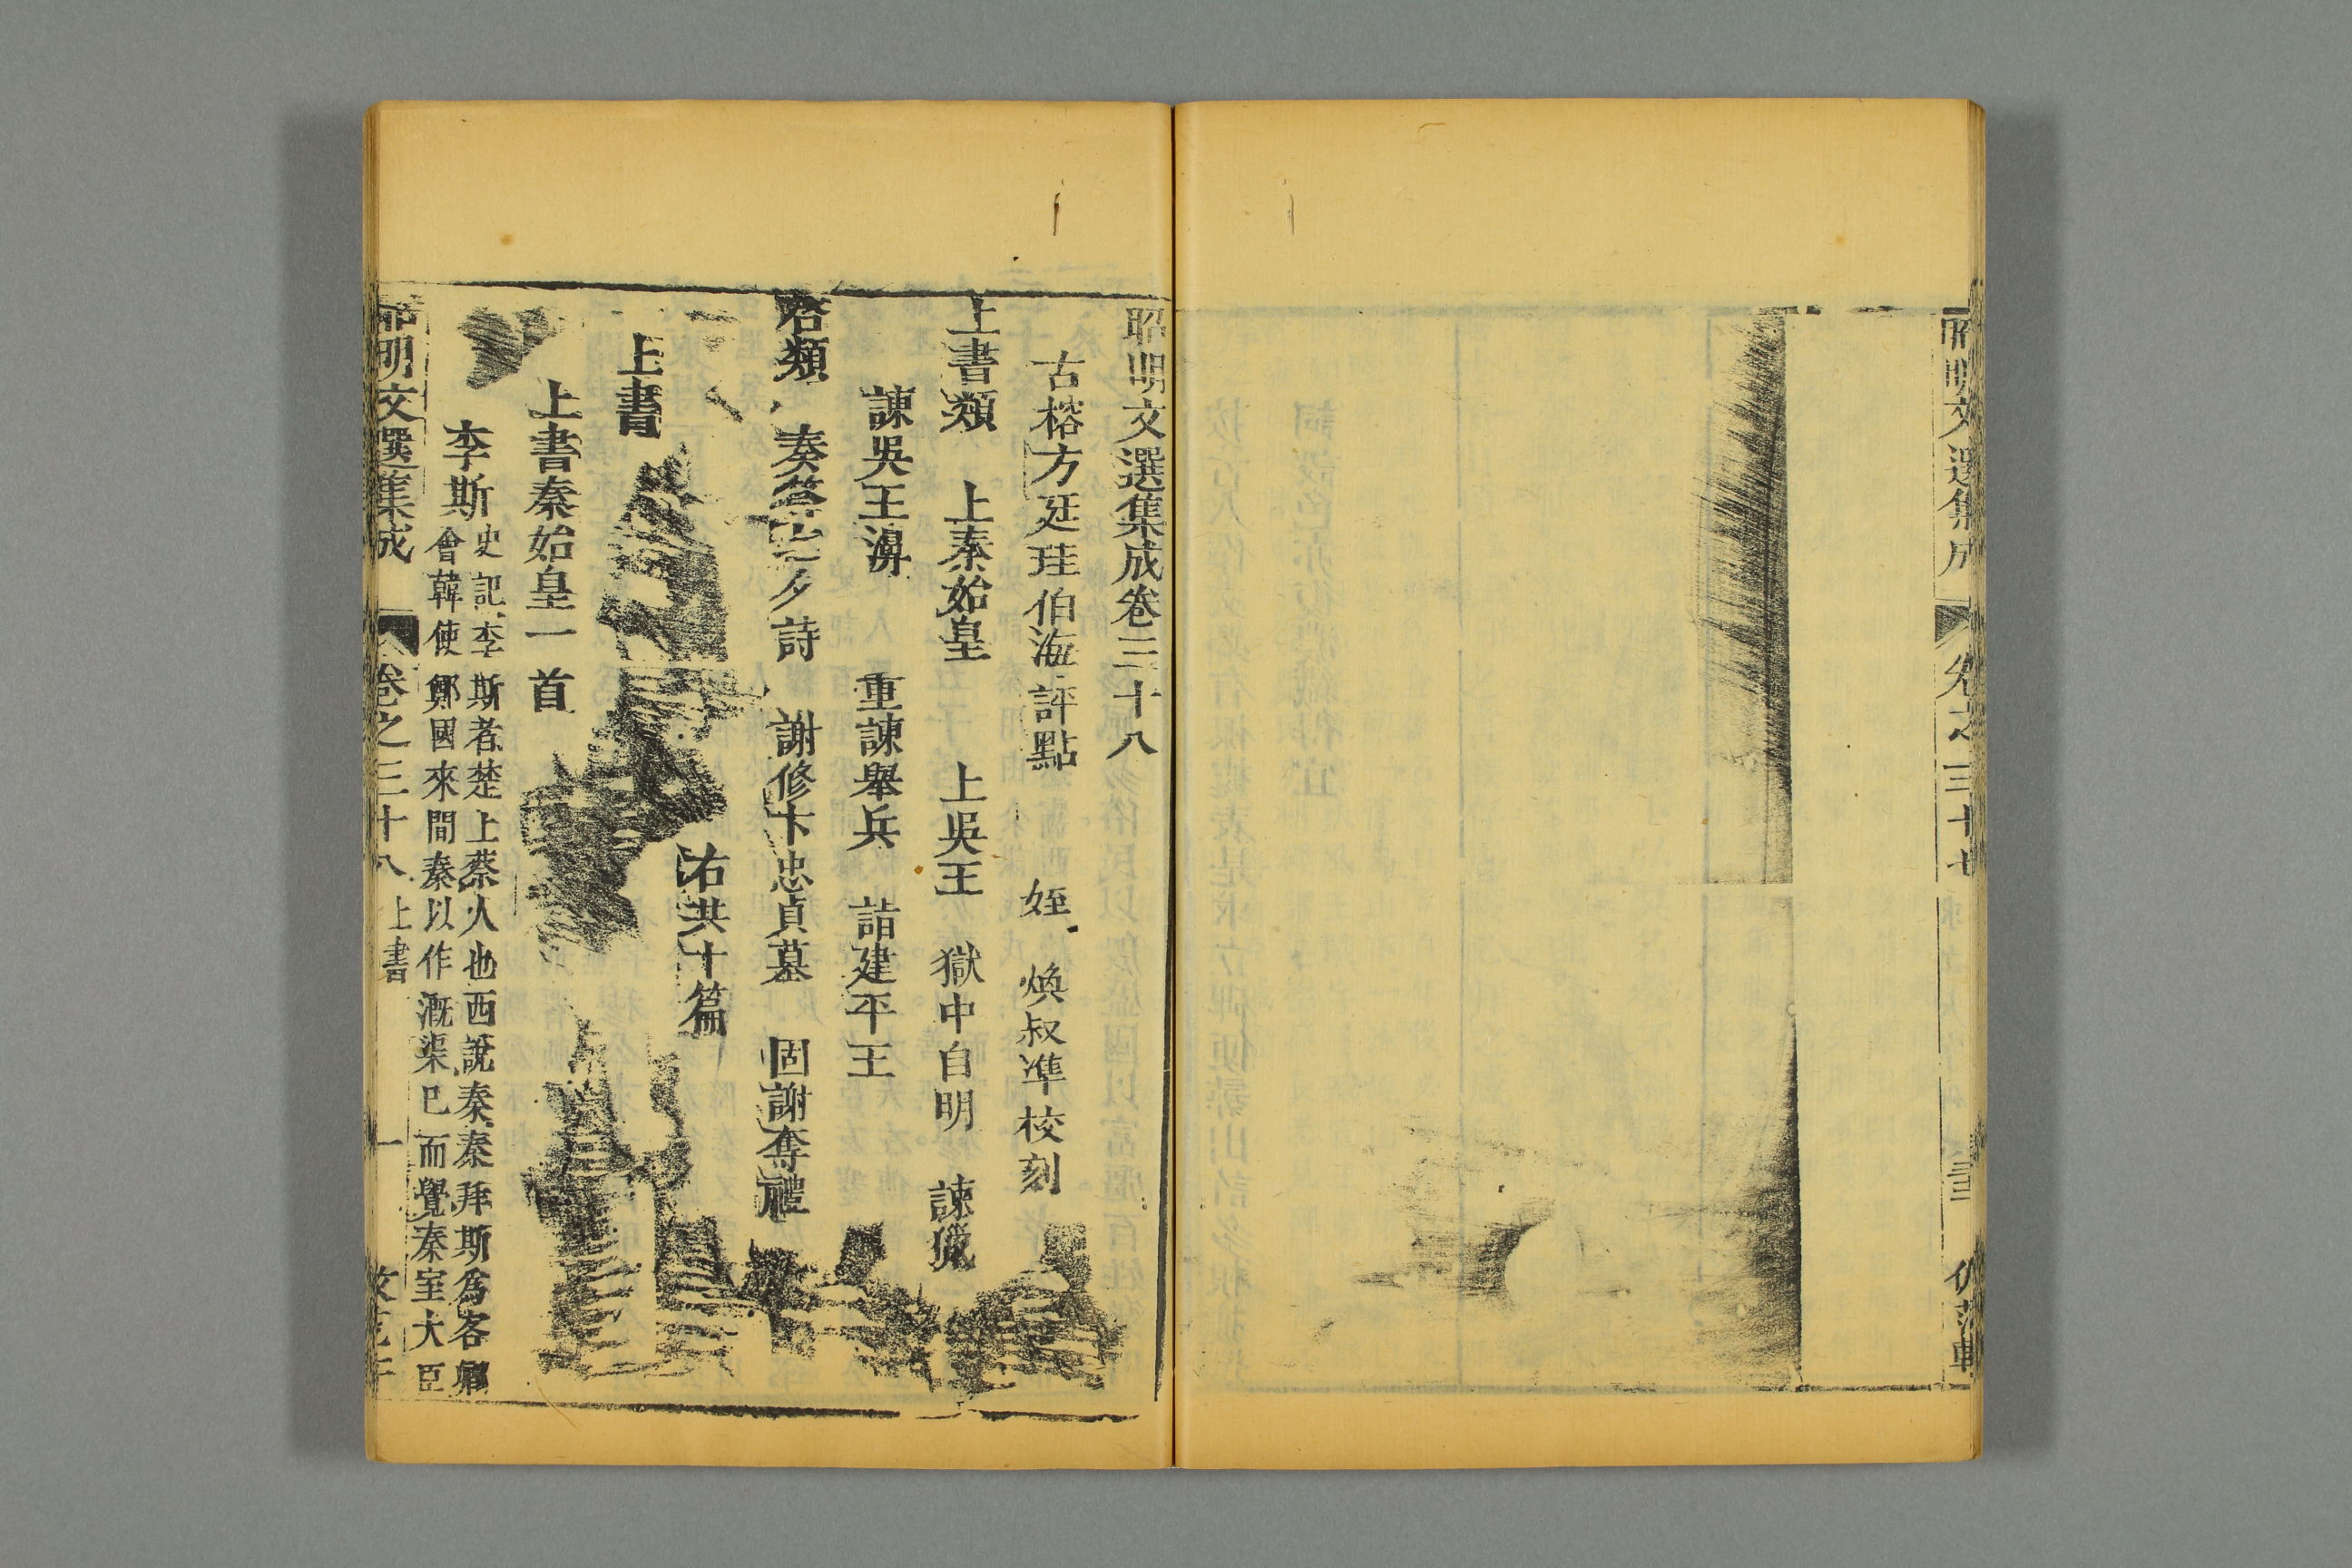 昭明文選集成
卷之三十七
書
昭明文選集成卷三十八
古榕方廷珪伯海評點　姪　煥叔準校刻
上書類　上秦始皇　上吳王　獄中自明　諫獵
諫吳王濞　重諫舉兵　詣建平王
啓類　奏答七夕詩　謝修卞忠貞墓　固謝奪禮
右共十篇
上書
上書秦始皇一首
李斯
史記李斯者楚上蔡人也西說秦秦拜斯爲客卿
會韓使鄭國來間秦以作漑渠已而覺秦室大臣
昭明文選集成
卷之三十八
上書
一